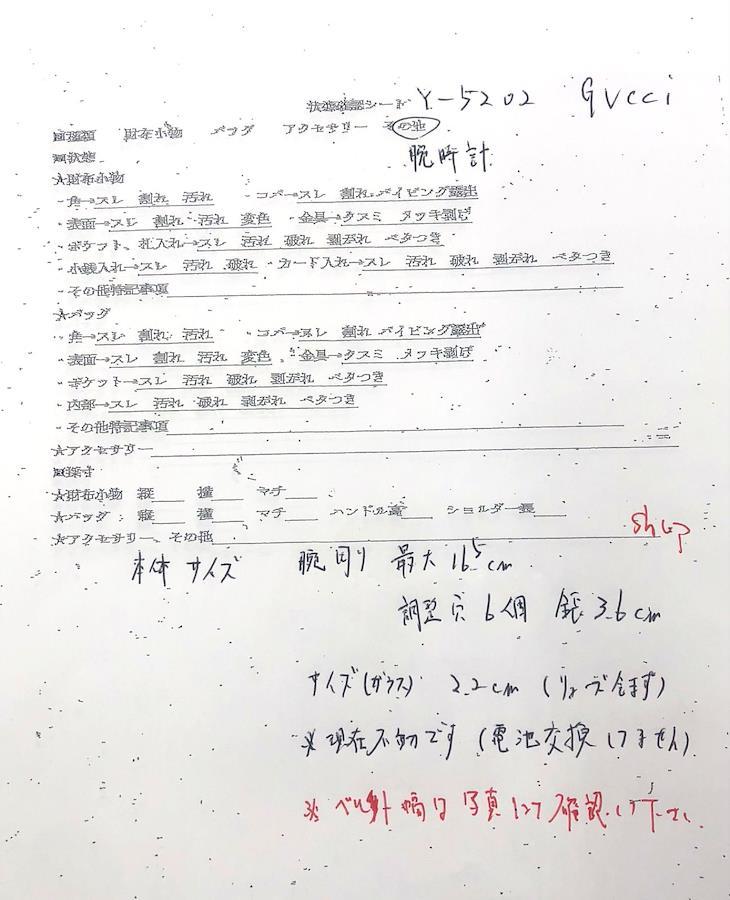 状態確認シート Y-5202 GUCCI
□種類 財布小物 バッグ アクセサリー その他
腕時計
□状態
★財布小物
・角→スレ 割れ 汚れ ・コバ→スレ 割れ パイピング露出
・表面→スレ 割れ 汚れ 変色 ・金具→クスミ メッキ剥げ
・ポケット、札入れ→スレ 汚れ 破れ 剥がれ ベタつき
・小銭入れ→スレ 汚れ 破れ ・カード入れ→スレ 汚れ 破れ 剥がれ ベタつき
・その他特記事項
★バッグ
・角→スレ 割れ 汚れ ・コバ→スレ 割れ パイピング露出
・表面→スレ 割れ 汚れ 変色 ・金具→クスミ メッキ剥げ
・ポケット→スレ 汚れ 破れ 剥がれ ベタつき
・内部→スレ 汚れ 破れ 剥がれ ベタつき
・その他特記事項
★アクセサリー
□採寸
★財布小物 縦 横 マチ
★バッグ 縦 横 マチ ハンドル高 ショルダー長
★アクセサリー、その他
本体サイズ 腕周り 最大 16.5cm
調整穴 6個 幅 3.6cm
サイズ(ガラス) 2.2cm (リューズ含まず)
※現在不動です (電池交換してません)
※ベルト幅は写真にて確認して下さい